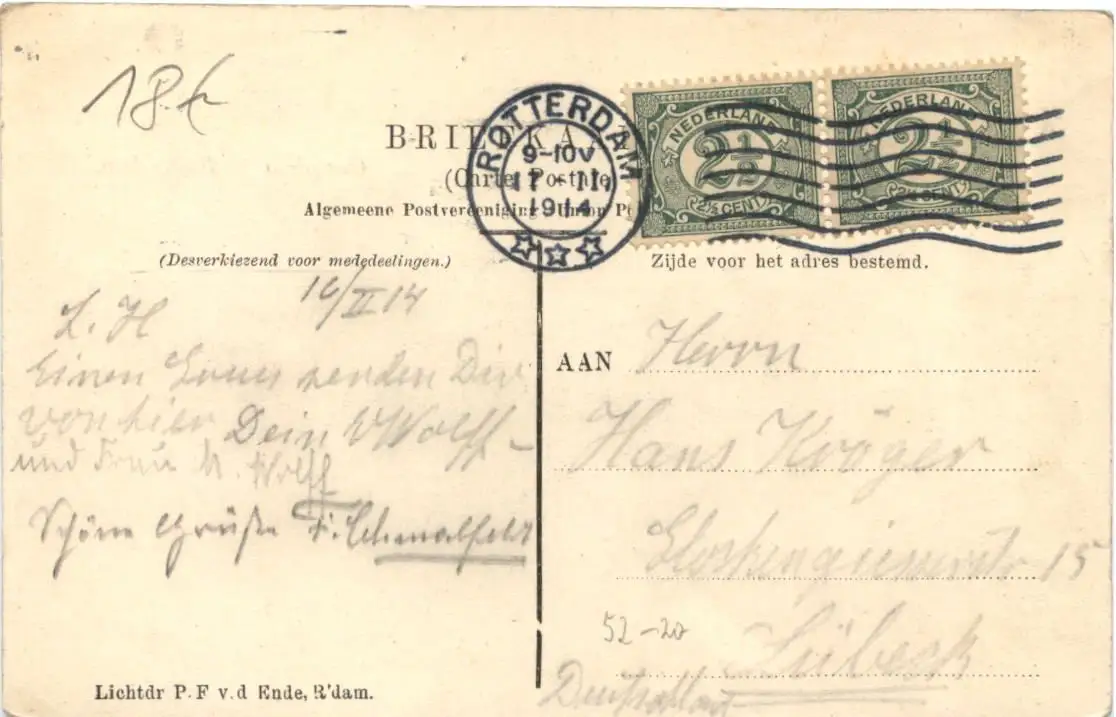 18.-
ROTTERDAM
9-10V
17-II
1914
NEDERLAND
2½
(2½ CENT)
NEDERLAND
2½
(2½ CENT)
BRIEFKA
(Carte Postale)
Algemeene Postvereeniging Union P
(Desverkiezend voor mededeelingen.)
Zijde voor het adres bestemd.
16/II 14
L. H
Einen senden Dir
von hier Dein Wolff
und Frau Wolff
Schöne Grüße Schmalfeldt
AAN Herrn
Hans Kröger
Glockengiesserstr 15
52-20
Lübeck
Deutschland
Lichtdr P.F v.d Ende, R'dam.